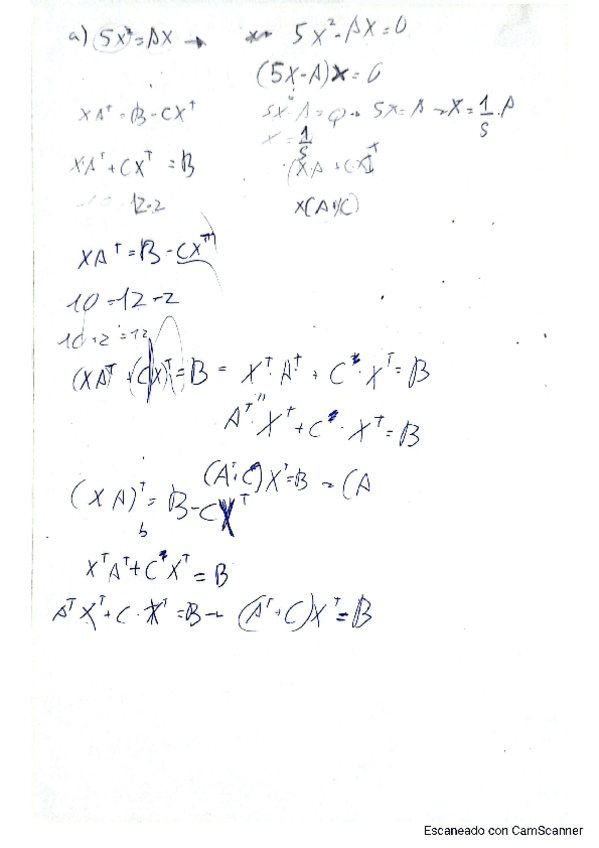 a) 5X² = AX → 5X² - AX = 0
(5X-A)X = 0
XAᵀ = B - CXᵀ
5X = A → X = 1/5 · A
X = 1/5
XAᵀ + CXᵀ = B
12-2
XAᵀ = B - CXᵀ
10 = 12 - 2
10 + 2 = 12
(XAᵀ + (CX)ᵀ = B = Xᵀ·Aᵀ + C · Xᵀ = B
Aᵀ · Xᵀ + C · Xᵀ = B
(XA)ᵀ = B - CXᵀ
(Aᵀ+C)Xᵀ = B = (A
XᵀAᵀ + CXᵀ = B
AᵀXᵀ + C·Xᵀ = B → (Aᵀ+C)Xᵀ = B
Escaneado con CamScanner